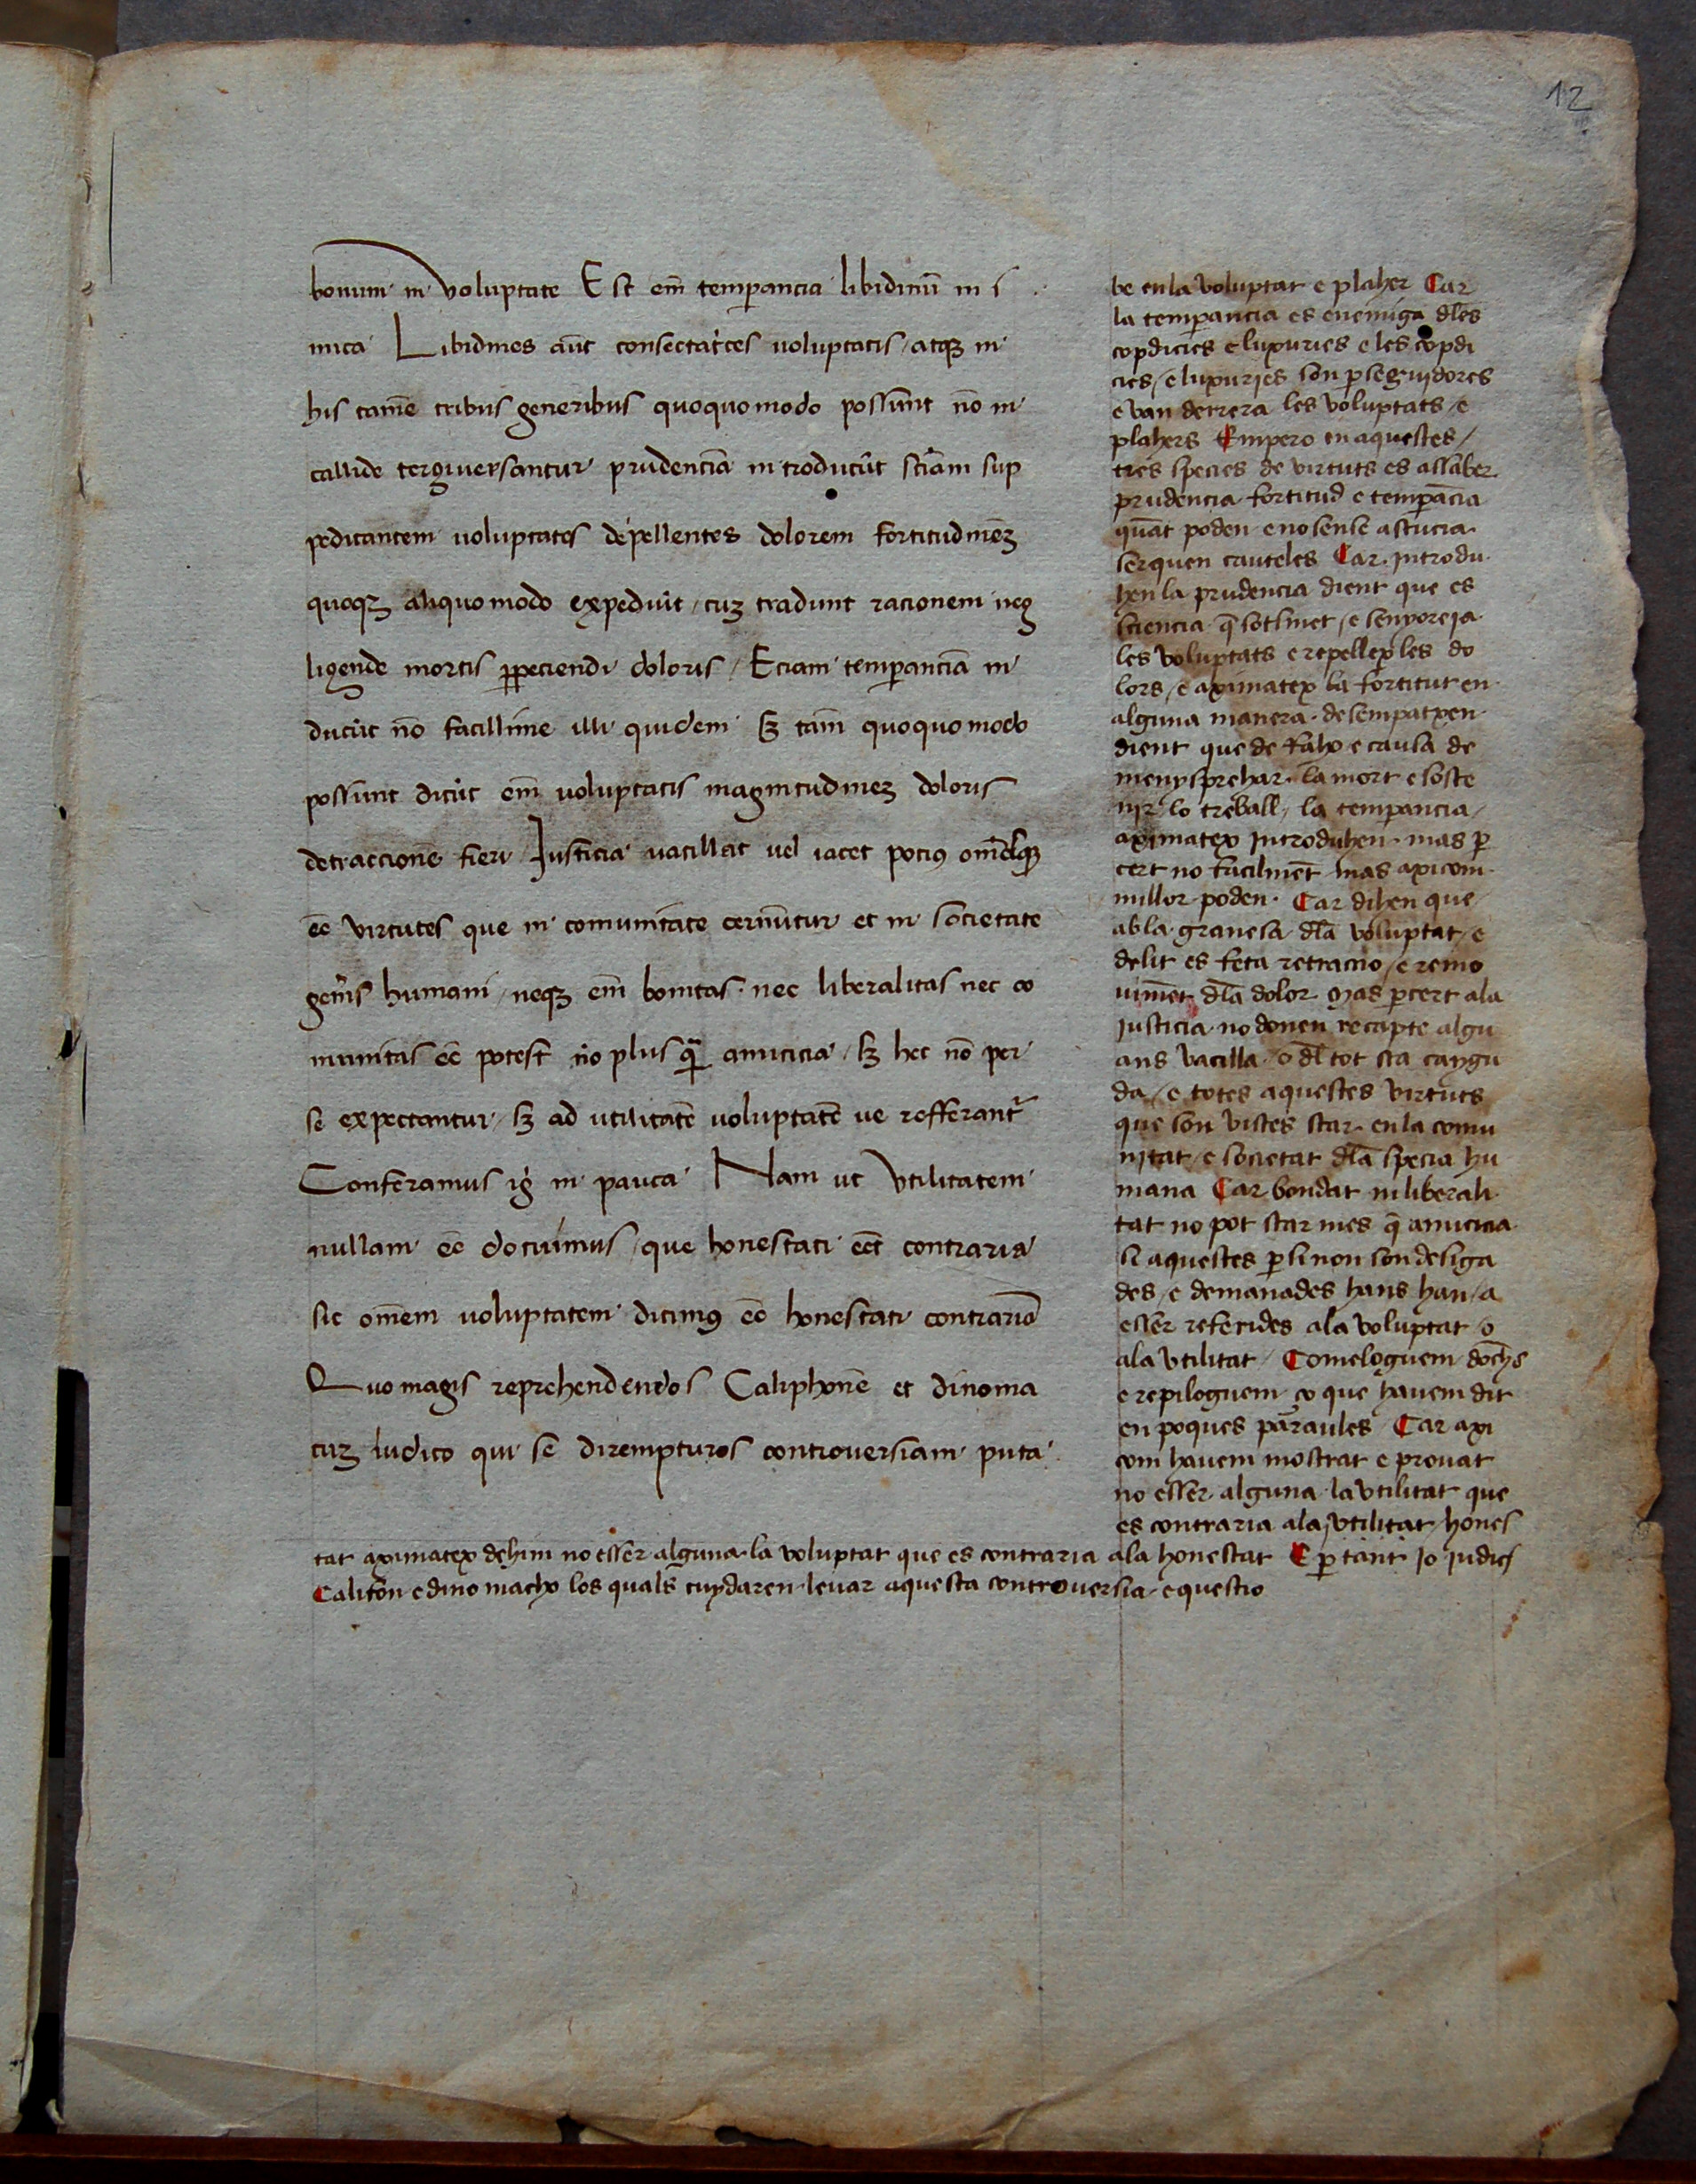 12
bonum in voluptate Est em̄ temperancia libidinū in i
mica Libidines aūt consectatrices voluptatis / atqꝫ in
his tamē tribus generibus quoquomodo possunt nō in
callide tergiversantur prudenciā introducūt sciām sup
peditantem voluptates depellentes dolorem fortitudinēꝫ
quoqꝫ aliquomodo expediūt / cuꝫ tradunt racionem neg
ligende mortis ꝑpeciendi doloris / Eciam temperanciā in
ducūt nō facillime illi quidem sꝫ tam̄ quoquomodo
possunt dicūt em̄ voluptatis magnitudineꝫ doloris
detraccione fieri Justicia vacillat vel iacet pociꝰ om̄esqꝫ
eē virtutes que in comunitate cernūtur et in societate
gen̄is humani / neqꝫ em̄ bonitas nec liberalitas nec co
munitas eē potest nō plus ꝙ̄ amicicia / sꝫ hec nō per
se expectantur / sꝫ ad utilitatē voluptatē ve refferant᷑
Conferamus ig̅ in pauca Nam ut utilitatem
nullam eē docuimus / que honestati eēt contraria
sic om̄em voluptatem dicimꝰ eē honestati contrariā
Quo magis reprehendendos Caliphonē et dinoma
cuꝫ iudico qui se dirempturos controversiam puta
be en la voluptat e plaher Car
la temperancia es enemiga dl̄es
copdicies e luxuries e les copdi
cies / e luxuries son ꝑseguidores
e van derrera les voluptats / e
plahers Empero en aquestes /
tres species de virtuts es assaber
prudencia fortitud e temperācia
quāt poden e no sense astucia
serquen cauteles Car introdu
hen la prudencia dient que es
sciencia q̄ sotsmet / e senyoreja
les voluptats e repellex les do
lors / e aximatex la fortitut en
alguna manera desempatxen
dient que de raho e causa de
menysprehar la mort e soste
nir lo treball / la temperancia /
aximatex introduhen mas ꝑ
cert no facilmēt mas axi com
millor poden Car dihen que
ab la granesa dl̄a voluptat / e
delit es feta retraccio / e remo
vimēt dl̄a dolor Mas ꝑcert a la
justicia no donen recapte algu
ans vacilla o dl̄ tot sta caygu
da / e totes aquestes virtuts
que son vistes star en la comu
nitat / e societat dl̄a specia hu
mana Car bondat ni liberali
tat no pot star mes q̄ amicicia
si aquestes ꝑ si non son desiga
des / e demanades hans han / a
esser referides a la voluptat / o
a la utilitat / Comeloguem dōchs
e repiloguem ço que havem dit
en poques paraules Car axi
com havem mostrat e provat
no esser alguna la utilitat que
es contraria a la utilitat / hones
tat aximatex dehim no esser alguna la voluptat que es contraria a la honestat E ꝑ tant Jo judich
Califon e dinomacho los quals cuydaren levar aquesta controversia e questio